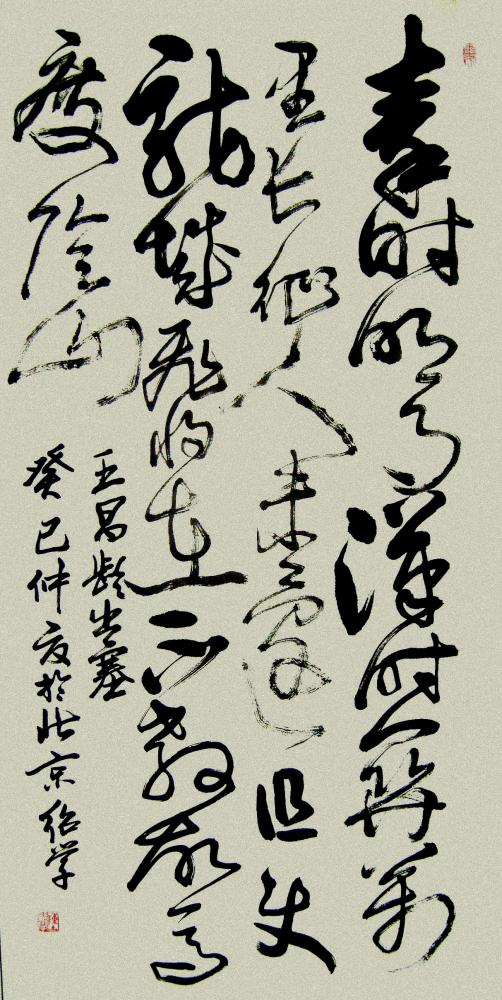 秦时明月汉时关万
里长征人未还但使
龙城飞将在不教胡马
度阴山
王昌龄出塞
癸巳仲夏于北京绍学